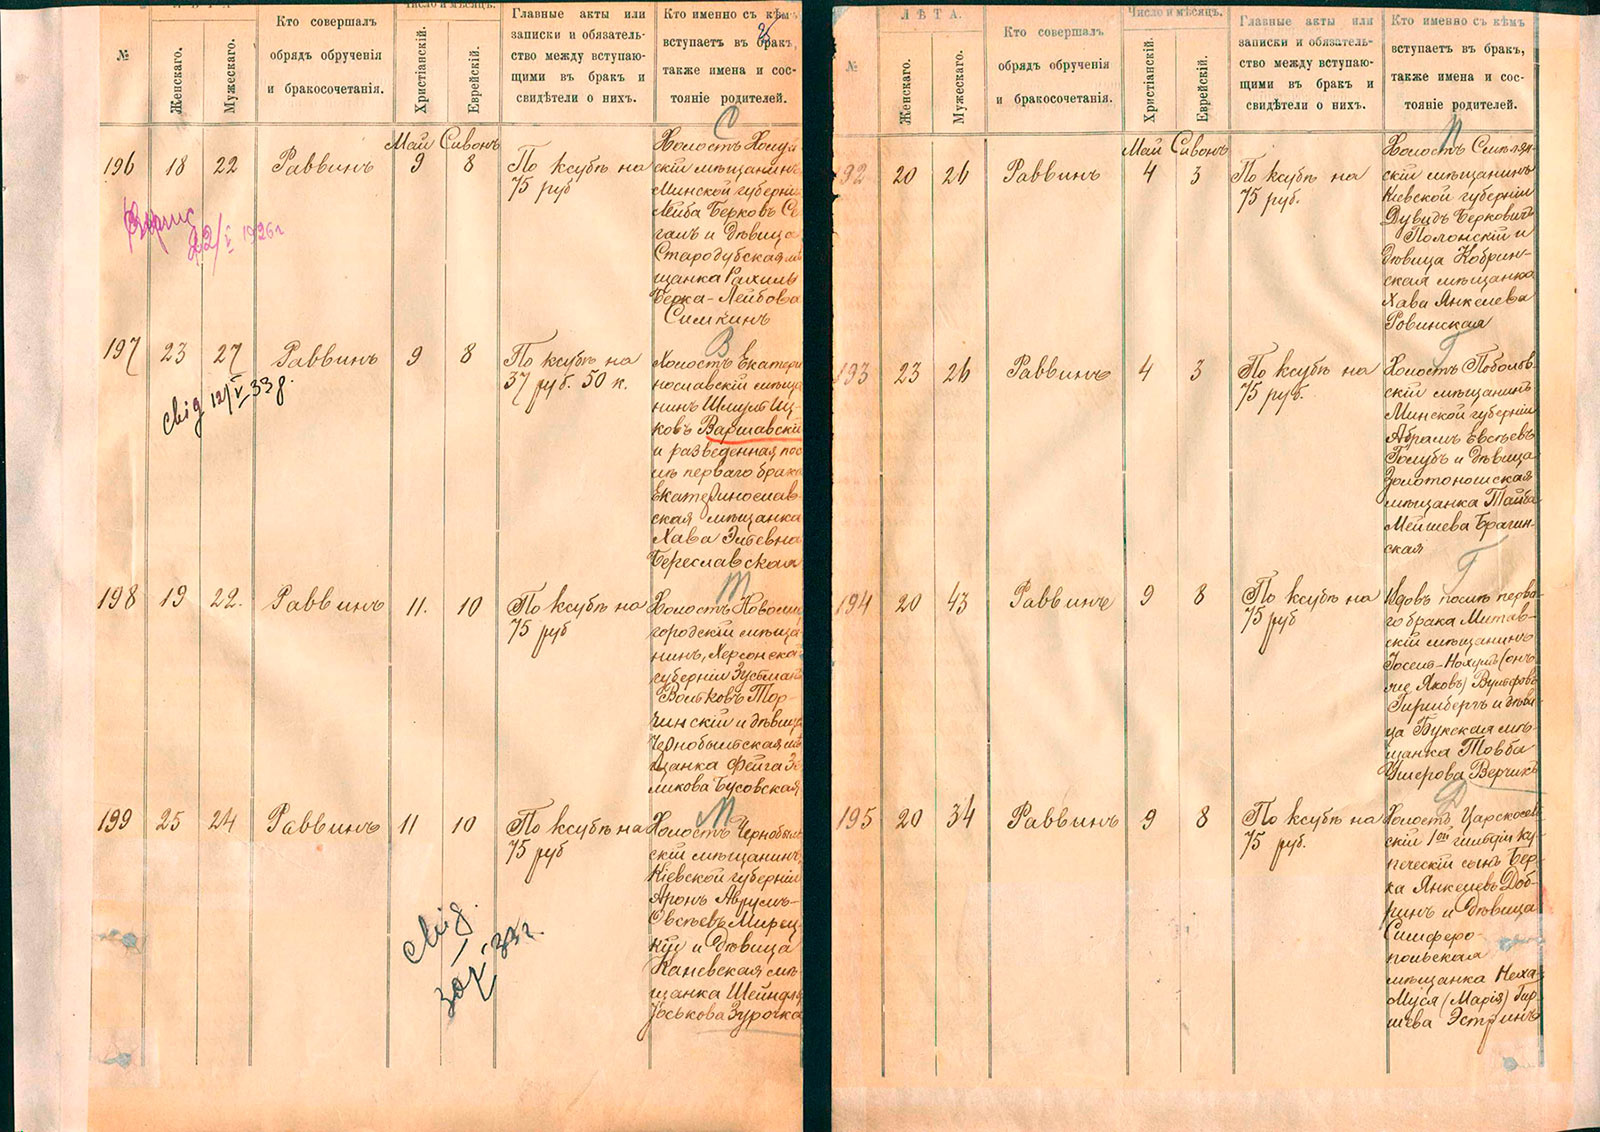 №
ЛѢТА
Женскаго.
Мужескаго.
Кто совершалъ
обрядъ обрученія
и бракосочетанія.
Число и мѣсяцъ.
Христіанскій.
Еврейскій.
Главные акты или
записки и обязатель-
ство между вступаю-
щими въ бракъ и
свидѣтели о нихъ.
Кто именно съ кѣмъ
вступаетъ въ бракъ,
также имена и сос-
тояніе родителей.
196
18
22
Раввинъ
Май
9
Сивонъ
8
По ксубѣ на
75 руб
С
Холостъ
скій мѣщанинъ
Минской губерніи
Лейба Берковъ Се
галъ и дѣвица
Стародубская мѣ
щанка Рахиль
Берка-Лейбова
Симкинъ
22/V 1926г
197
23
27
Раввинъ
9
8
По ксубѣ на
37 руб. 50 к.
В
Холостъ Екатери
нославскій мѣща
нинъ Шмуль Иц
ковъ Варшавскій
и разведенная пос
лѣ перваго брака
Екатеринослав-
ская мѣщанка
Хава
Береславская
свід 12/V 33
198
19
22.
Раввинъ
11.
10
По ксубѣ на
75 руб
Т
Холостъ Новоми
городскій мѣща
нинъ, Херсонской
губерніи Зусманъ
Вольковъ Тор-
чинскій и дѣвица
Чернобыльская мѣ
щанка Фейга Зе
ликова Бусовская
199
25
24
Раввинъ
11
10
По ксубѣ на
75 руб
М
Холостъ Чернобыль
скій мѣщанинъ,
Кіевской губерніи
Аронъ Аврумъ-
Овсѣевъ Мирец-
кій и дѣвица
Каневская мѣ-
щанка Шейндля
Іоськова Зурочка
свід.
№
ЛѢТА.
Женскаго.
Мужескаго.
Кто совершалъ
обрядъ обрученія
и бракосочетанія.
Число и мѣсяцъ.
Христіанскій.
Еврейскій.
Главные акты или
записки и обязатель-
ство между вступаю-
щими въ бракъ и
свидѣтели о нихъ.
Кто именно съ кѣмъ
вступаетъ въ бракъ,
также имена и сос-
тояніе родителей.
192
20
26
Раввинъ
Май
4
Сивонъ
3
По ксубѣ на
75 руб.
П
Холостъ Смѣлян-
скій мѣщанинъ
Кіевской губерніи
Дувидъ Берковичъ
Полонскій и
дѣвица Кобрин-
ская мѣщанка
Хава Янкелева
Ровинская
193
23
26
Раввинъ
4
3
По ксубѣ на
75 руб.
Г
Холостъ Поболов-
скій мѣщанинъ
Минской губерніи
Абрамъ Евсѣевъ
Голубъ и дѣвица
Золотоношская
мѣщанка Тайба
Мейшева Брагин-
ская
194
20
43
Раввинъ
9
8
По ксубѣ на
75 руб
Г
Вдовъ послѣ перва-
го брака Митав-
скій мѣщанинъ
Іосель-Нохумъ (онъ-
же Яковъ) Вульфовъ
Гиршбергъ и дѣви-
ца Букская мѣ-
щанка Товба
Ушерова Верчикъ
195
20
34
Раввинъ
9
8
По ксубѣ на
75 руб.
Д
Холостъ Царскосель
скій 1ой гильдіи ку-
печескій сынъ Бер-
ка Янкелевъ Доб-
ринъ и дѣвица
Симферо-
польская
мѣщанка Неха-
Муся (Марія) Гир-
шева Эстринъ